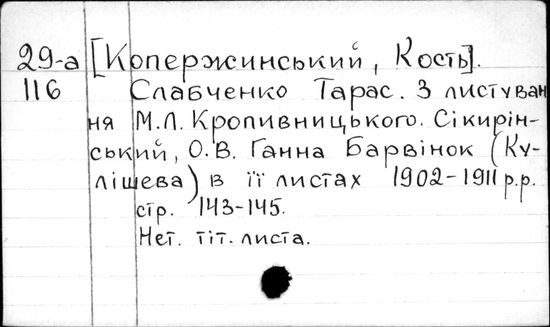 29-а [Копержинський, Кость].
116 Слабченко Тарас. З листуван
ня М.Л. Кропивницького. Сікирін-
ський, О.В. Ганна Барвінок (Ку-
лішева) в її листах 1902-1911 р.р.
стр. 143-145.
Нет. тіт. листа.